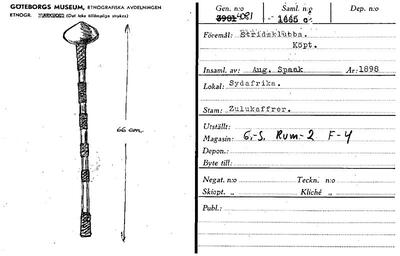 GÖTEBORGS MUSEUM, ETNOGRAFISKA AVDELNINGEN
ETNOGR. (Det icke tillämpliga strykes)
66 cm
Gen. n:o Saml. n:o Dep. n:o
3981 4081 1665 c.
Föremål: Stridsklubba.
Köpt.
Insaml. av: Aug. Spaak År: 1898
Lokal: Sydafrika.
Stam: Zulukaffrer.
Utställt:
Magasin: G.-S. Rum-2 F-4
Depon.:
Byte till:
Negat. n:o Teckn. n:o
Skiopt. „ Kliché „
Publ.: